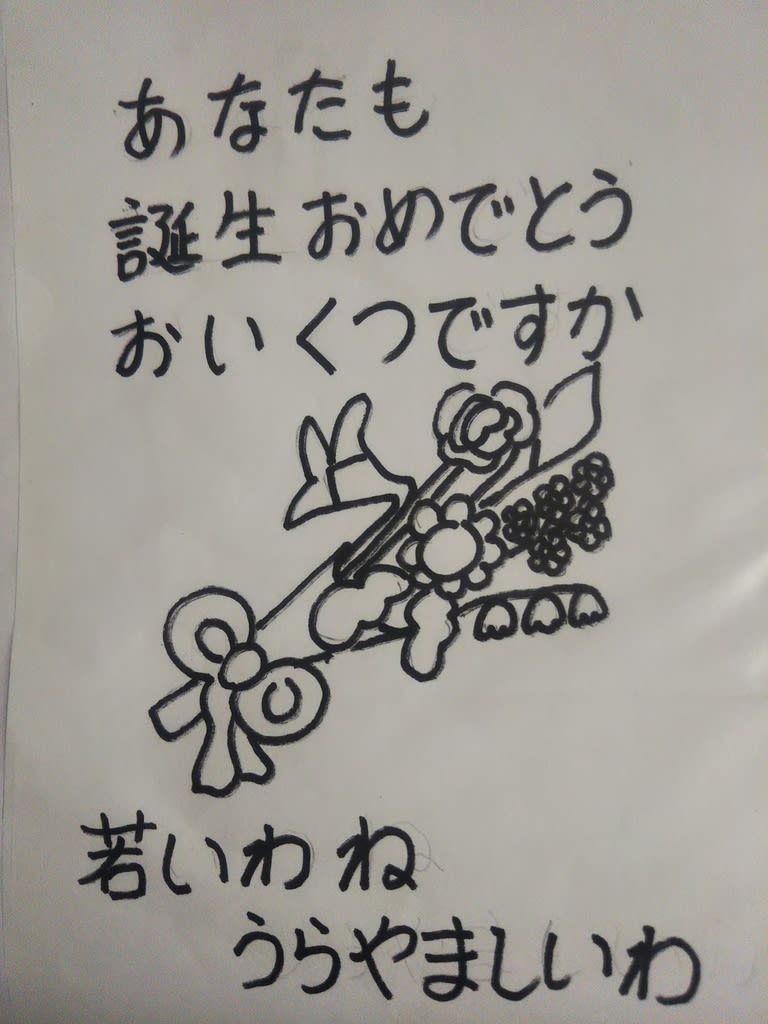 あなたも
誕生おめでとう
おいくつですか
若いわね
うらやましいわ